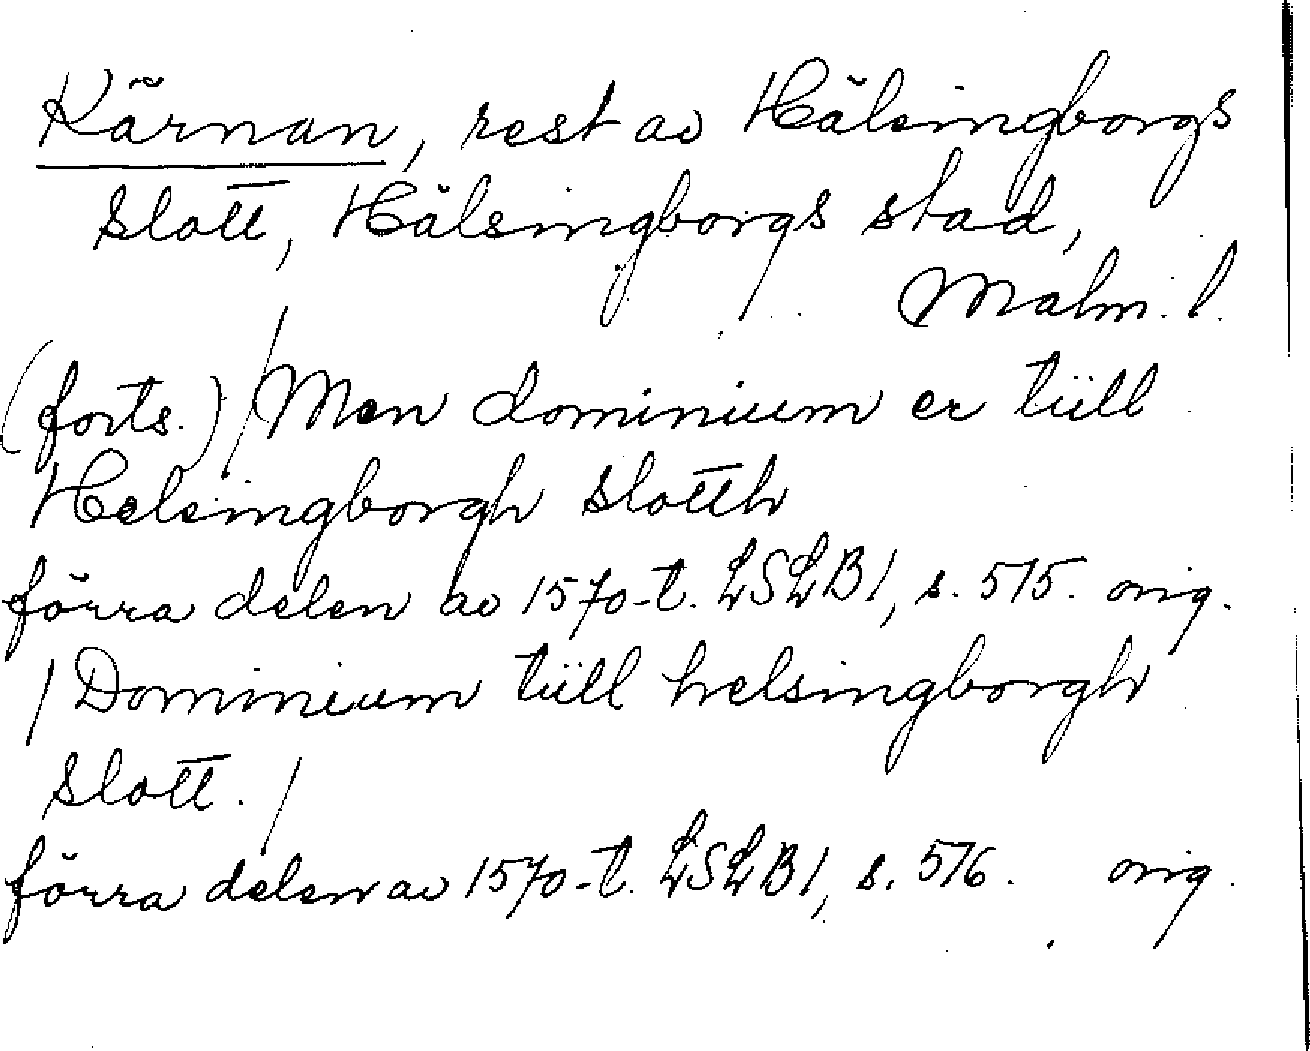 Kärnan, rest av Hälsingborgs
slott, Hälsingborgs stad,
Malm. l.
(forts.) / Men dominium er tüll
Helsingborgh slotth
förra delen av 1570-t. LSLB 1, s. 575. orig.
/ Dominium tüll helsingborgh
slott. /
förra delen av 1570-t. LSLB 1, s. 576. orig.